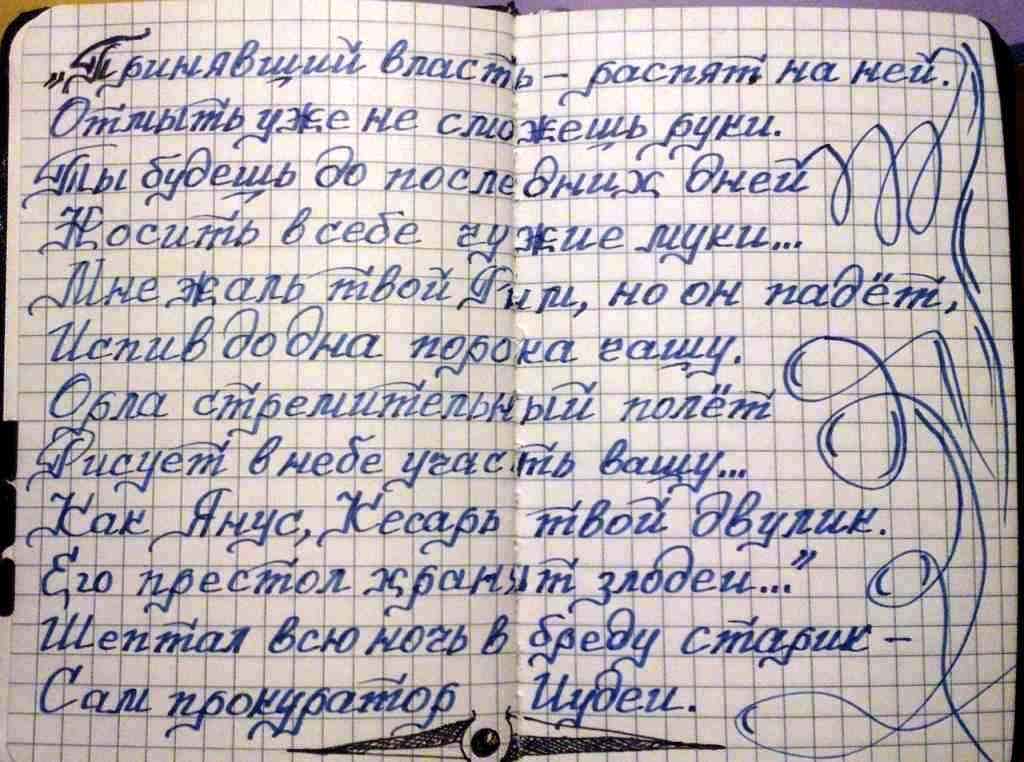 „Принявший власть – распят на ней.
Отмыть уже не сможешь руки.
Ты будешь до последних дней
Носить в себе чужие муки...
Мне жаль твой Рим, но он падёт,
Испив до дна порока чашу.
Орла стремительный полёт
Рисует в небе участь вашу...
Как Янус, Кесарь твой двулик.
Его престол хранят злодеи...”
Шептал всю ночь в бреду старик –
Сам прокуратор Иудеи.